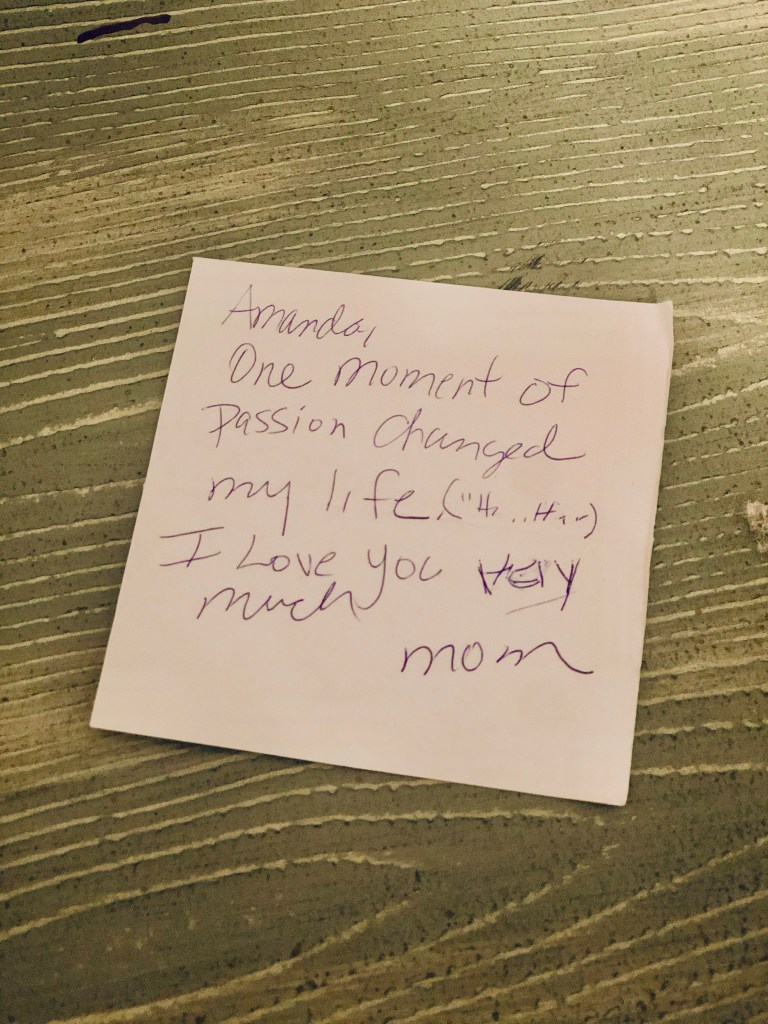 Amanda,
One moment of
Passion changed
my life. ("H...H...")
I Love you very
much
mom